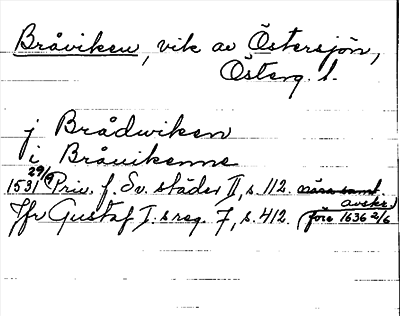 Bråviken, vik av Östersjön,
Österg. l.
j Brådwiken
i Bråuikenne
1531 29/9 Priv. f. Sv. städer II, s. 112.
avskr.
Jfr Gustaf I:s reg. 7, s. 412. (före 1636 2/6